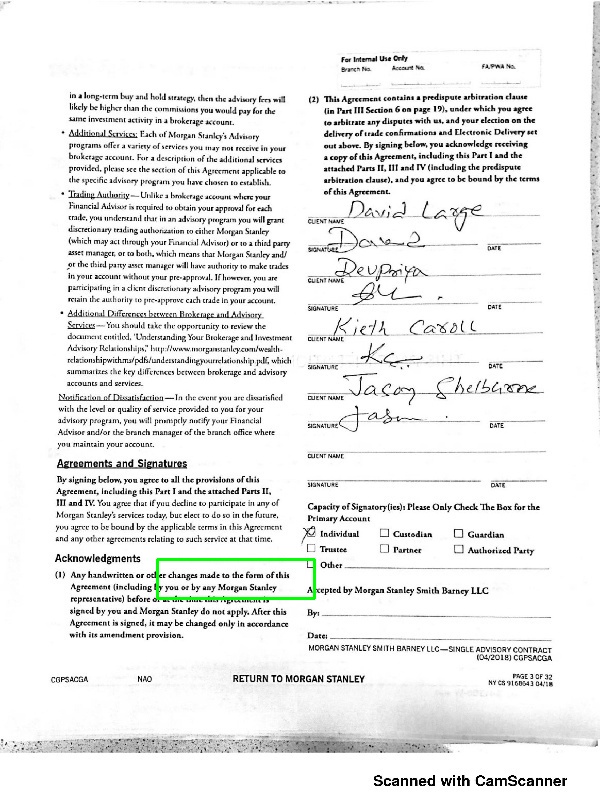 For Internal Use Only
Branch No. Account No. FA/PWA No.
in a long-term buy and hold strategy, then the advisory fees will
likely be higher than the commissions you would pay for the
same investment activity in a brokerage account.
• Additional Services: Each of Morgan Stanley's Advisory
programs offer a variety of services you may not receive in your
brokerage account. For a description of the additional services
provided, please see the section of this Agreement applicable to
the specific advisory program you have chosen to establish.
• Trading Authority—Unlike a brokerage account where your
Financial Advisor is required to obtain your approval for each
trade, you understand that in an advisory program you will grant
discretionary trading authorization to either Morgan Stanley
(which may act through your Financial Advisor) or to a third party
asset manager, or to both, which means that Morgan Stanley and/
or the third party asset manager will have authority to make trades
in your account without your pre-approval. If however, you are
participating in a client discretionary advisory program you will
retain the authority to pre-approve each trade in your account.
• Additional Differences between Brokerage and Advisory
Services—You should take the opportunity to review the
document entitled, "Understanding Your Brokerage and Investment
Advisory Relationships," http://www.morganstanley.com/wealth-
relationshipwithms/pdfs/understandingyourrelationship.pdf, which
summarizes the key differences between brokerage and advisory
accounts and services.
Notification of Dissatisfaction—In the event you are dissatisfied
with the level or quality of service provided to you for your
advisory program, you will promptly notify your Financial
Advisor and/or the branch manager of the branch office where
you maintain your account.
Agreements and Signatures
By signing below, you agree to all the provisions of this
Agreement, including this Part I and the attached Parts II,
III and IV. You agree that if you decline to participate in any of
Morgan Stanley's services today, but elect to do so in the future,
you agree to be bound by the applicable terms in this Agreement
and any other agreements relating to such service at that time.
Acknowledgments
(1) Any handwritten or other changes made to the form of this
Agreement (including by you or by any Morgan Stanley
representative) before or at the time this Agreement is
signed by you and Morgan Stanley do not apply. After this
Agreement is signed, it may be changed only in accordance
with its amendment provision.
(2) This Agreement contains a predispute arbitration clause
(in Part III Section 6 on page 19), under which you agree
to arbitrate any disputes with us, and your election on the
delivery of trade confirmations and Electronic Delivery set
out above. By signing below, you acknowledge receiving
a copy of this Agreement, including this Part I and the
attached Parts II, III and IV (including the predispute
arbitration clause), and you agree to be bound by the terms
of this Agreement.
David Large
CLIENT NAME
SIGNATURE DATE
Devpriya
CLIENT NAME
SIGNATURE DATE
Kieth Caroll
CLIENT NAME
Kc
SIGNATURE DATE
Jason Shelburne
CLIENT NAME
Jason
SIGNATURE DATE
CLIENT NAME
SIGNATURE DATE
Capacity of Signatory(ies): Please Only Check The Box for the
Primary Account
Individual Custodian Guardian
Trustee Partner Authorized Party
Other
Accepted by Morgan Stanley Smith Barney LLC
By:
Date:
MORGAN STANLEY SMITH BARNEY LLC—SINGLE ADVISORY CONTRACT
(04/2018) CGPSACGA
CGPSACGA NAO RETURN TO MORGAN STANLEY PAGE 3 OF 32
NY CS 9168643 04/18
Scanned with CamScanner